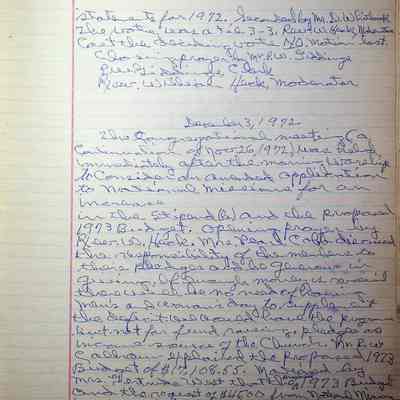 Statements for 1972. Seconded by Mr. D. W.
The vote was a tie 3-3, Rev. W. Hock, Moderator
Cast the deciding vote No. Motion lost.
Closing prayer by Mr. P.W. Giddings
Giddings, Clerk
Rev. William Hock, Moderator
December 3, 1972
The Congregational meeting (a
Continuation of Nov. 26, 1972) was held
immediately after the morning Worship
to Consider an amended application
to National Missions for an
increase
in the Stipend(s) and the proposed
1973 Budget. Opening prayer by
Rev. W. Hock. Mrs. Pearl Cobb discussed
the responsibility of the members to
their pledges and to be generous in
giving. If enough money is received
there will be no need of having
the deficit we would have the program
but not for fund raising, pledges as
income source of the Church. Mr. R.
Calhoun explained the proposed 1973
Budget of $17,108.55. by
Mrs. Gertrude West that the 1973 Budget
and the request of $4600 from National Missions